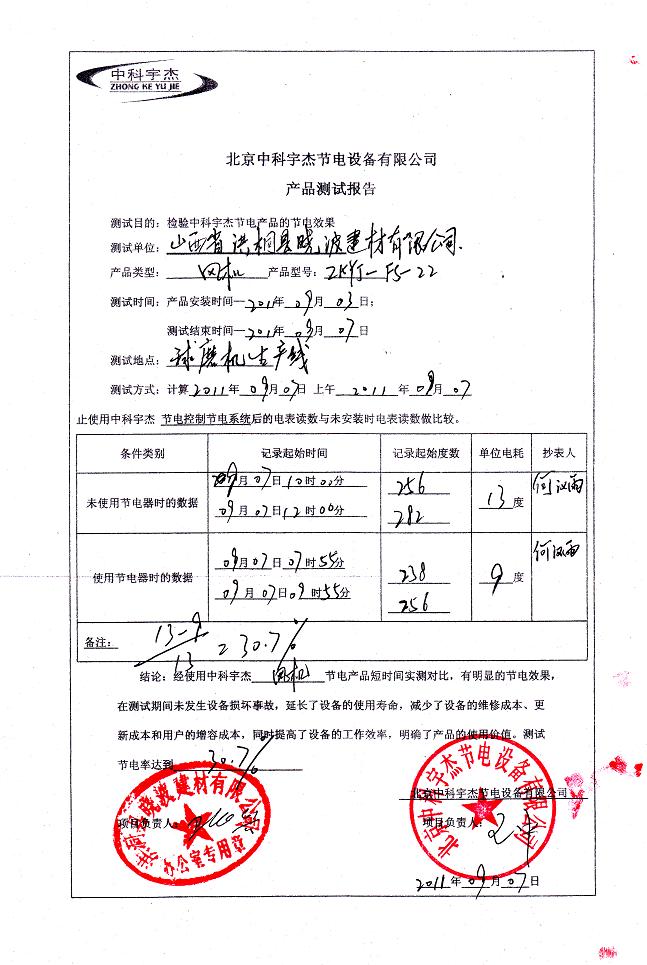 中科宇杰
ZHONG KE YU JIE
北京中科宇杰节电设备有限公司
产品测试报告
测试目的：检验中科宇杰节电产品的节电效果
测试单位：山西省洪桐县晓波建材有限公司.
产品类型： 风机 产品型号：ZKYJ-FS-22
测试时间：产品安装时间—2011年 09月 03日；
测试结束时间—2011年 09月 07日
测试地点：球磨机生产线
测试方式：计算 2011年 09月 07日 上午 2011 年 09月 07
止使用中科宇杰 节电控制节电系统后的电表读数与未安装时电表读数做比较。
条件类别 记录起始时间 记录起始度数 单位电耗 抄表人
未使用节电器时的数据 09月 07日 10时 00分 256 13度
09月 07日 12时 00分 282
使用节电器时的数据 09月 07日 07时 55分 238 9度
09月 07日 09时 55分 256
备注： 13-9/13 = 30.7%
结论：经使用中科宇杰 风机 节电产品短时间实测对比，有明显的节电效果，
在测试期间未发生设备损坏事故，延长了设备的使用寿命，减少了设备的维修成本、更
新成本和用户的增容成本，同时提高了设备的工作效率，明确了产品的使用价值。测试
节电率达到 30.7%
北京中科宇杰节电设备有限公司
项目负责人： 项目负责人：
办公室专用章
北京中科宇杰节电设备有限公司
2011年 09月 07日